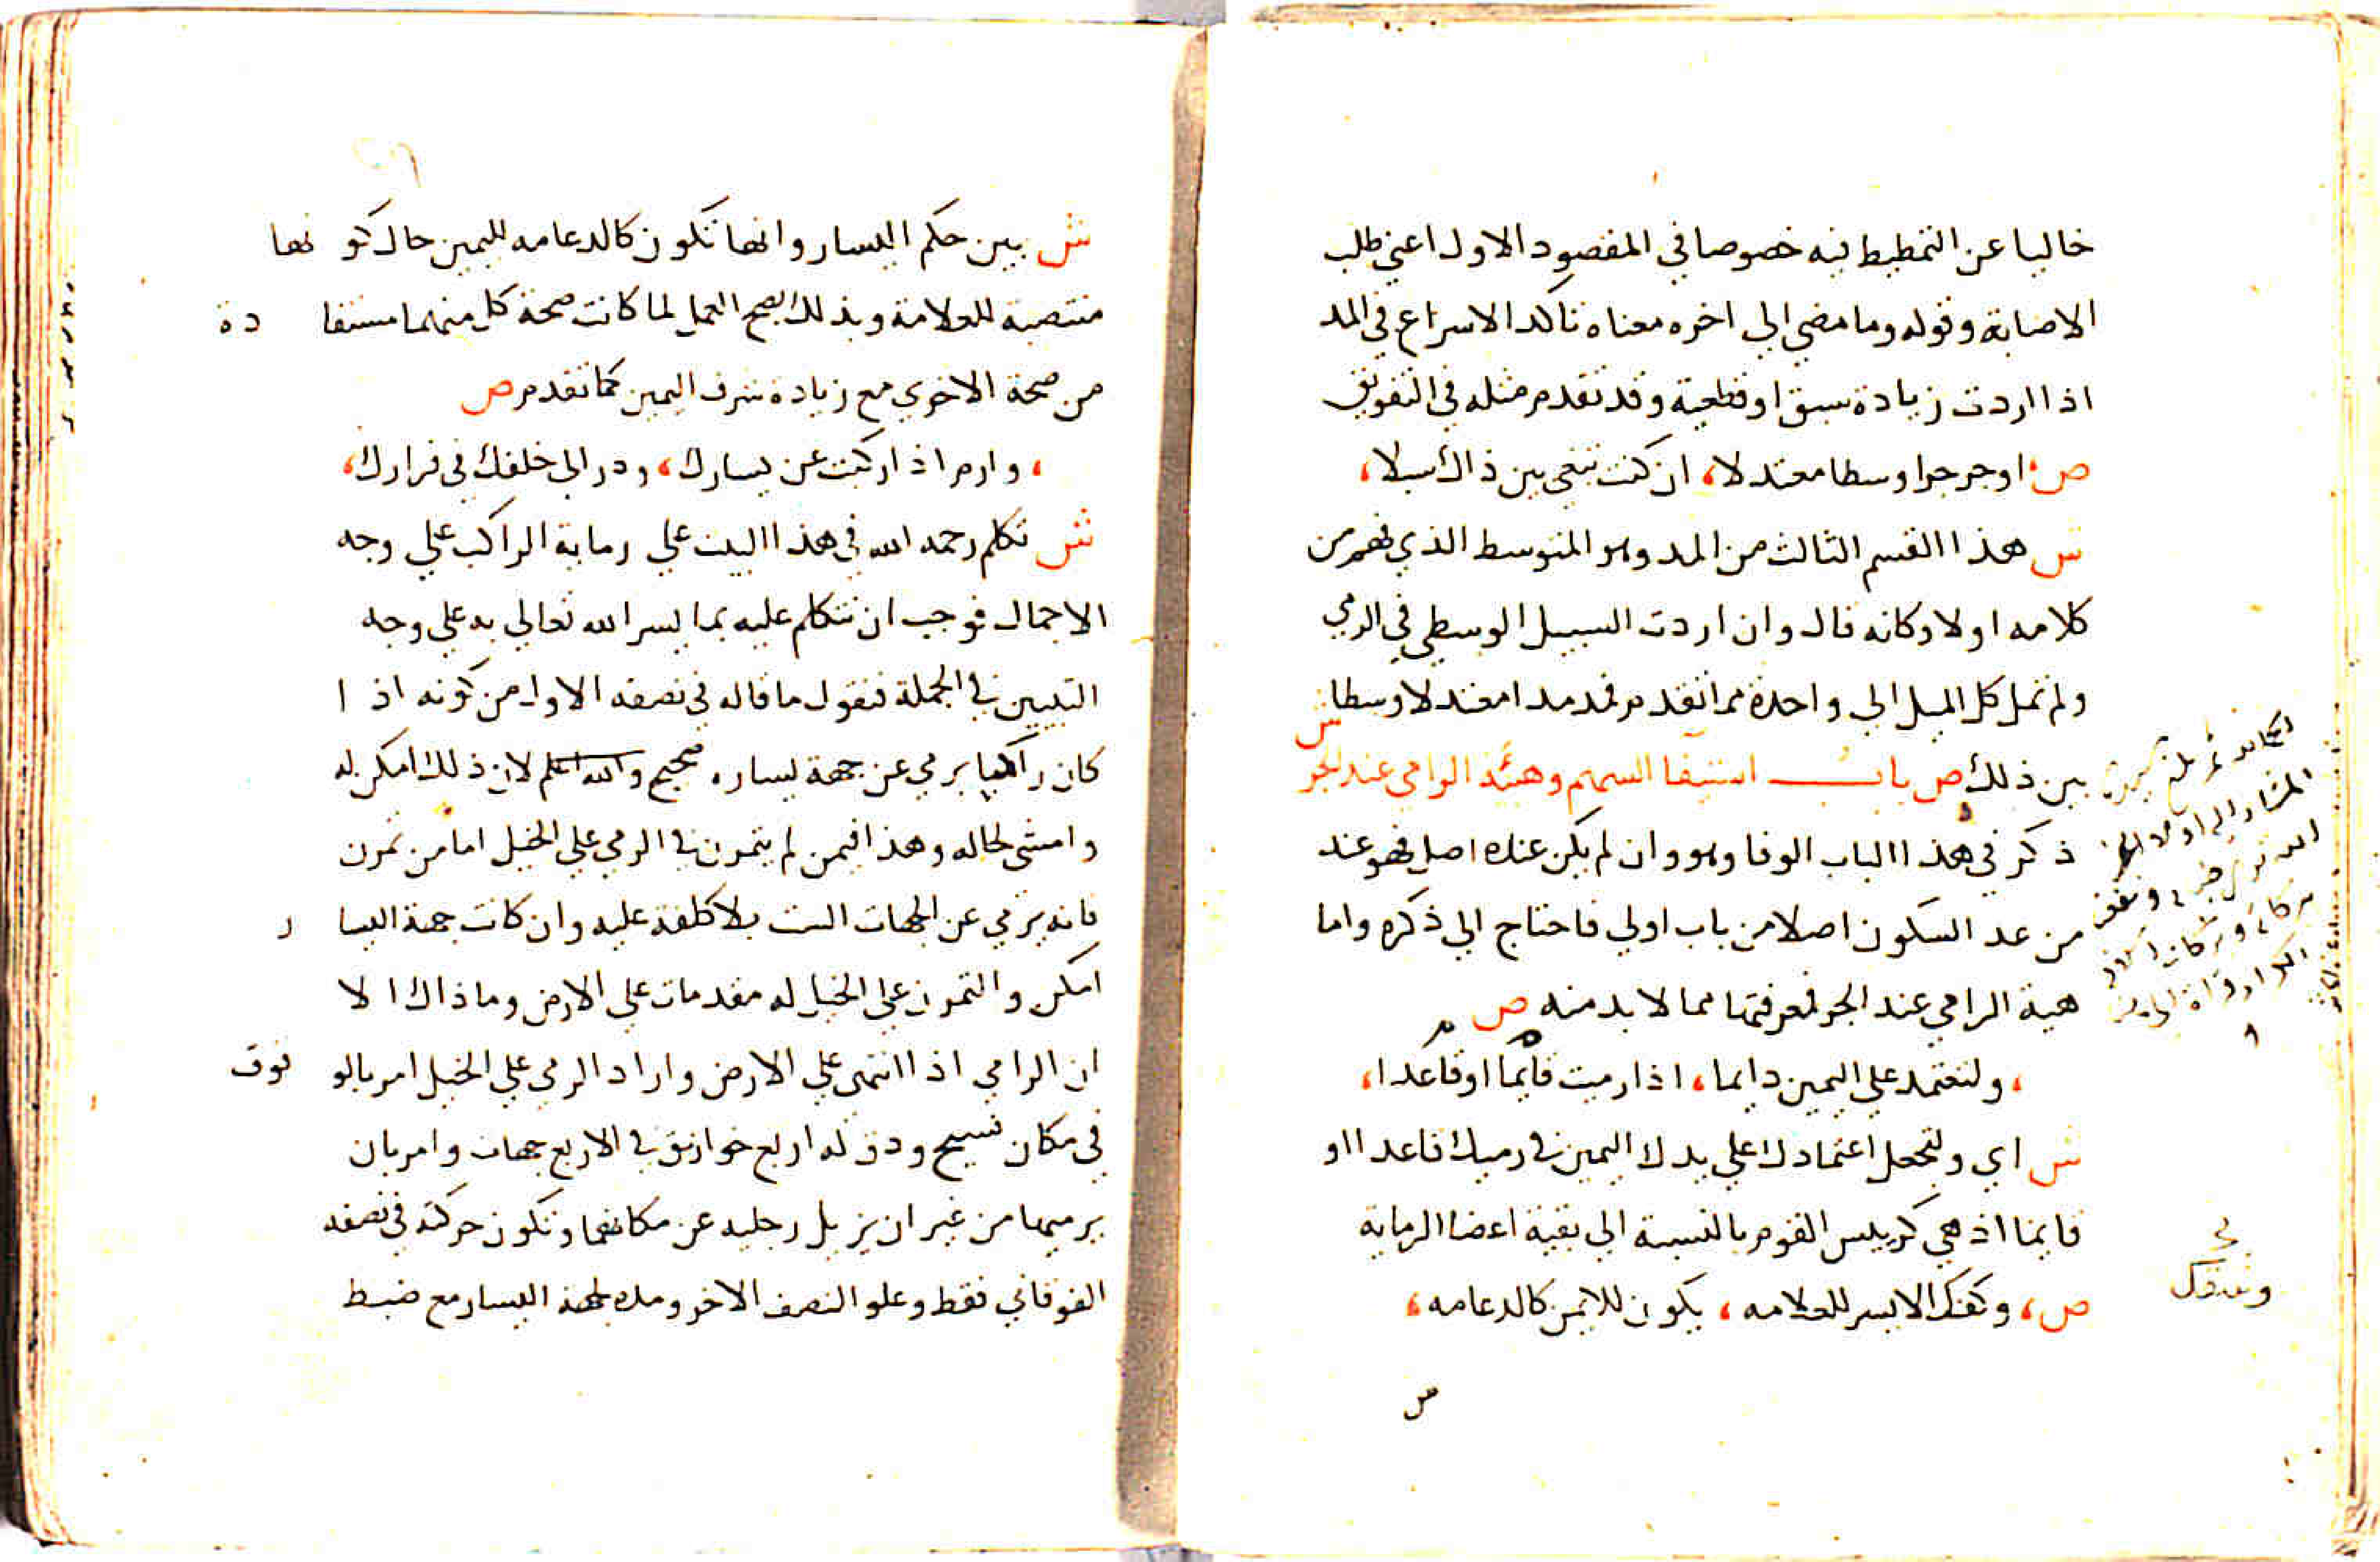 خاليا عن التمطيط فيه خصوصا في المقصود الاول اعني طلب
الاصابة وقوله وما مضي الي اخره معناه تاكد الاسراع في المد
اذا اردت زيادة سبق او قطعية وقد تقدم مثله في التفويق
ص، اوجر جرا وسطا معتدلا، ان كنت تبتغي بين ذاك سبلا،
ش هذا القسم الثالث من المد وهو المتوسط الذي فهم من
كلامه اولا وكانه قال وان اردت السبيل الوسطي في الرمي
ولم تمل كل الميل الي واحدة مما تقدم فمد مدا معتدلا وسطا
بين ذلك ص باب استيفا السهم وهيئة الرامي عند الجر ش
ذكر في هذا الباب الوفا وهو وان لم يكن عنده اصل فهو عند
من عد السكون اصلا من باب اولي فاحتاج الي ذكره واما
هية الرامي عند الجر فمعرفتها مما لا بد منه ص
، ولتعتمد علي اليمين دايما، اذا رميت قايما او قاعدا،
ش اي ولتجعل اعتمادك علي يدك اليمين في رميك قاعدا او
قايما اذ هي كرييس القوم بالنسبة الي بقية اعضا الرماية
ص، وكفك الايسر للعلامه، يكون للايمن كالدعامه،
ش بين حكم اليسار وانها تكون كالدعامه لليمين حال كونها
منتصبة للعلامة وبذلك يصح العمل لما كانت صحة كل منهما مستفادة
من صحة الاخري مع زيادة شرف اليمين كما تقدم ص
، وارم اذا ركبت عن يسارك، ودر الي خلفك في فرارك،
ش تكلم رحمه الله في هذا البيت علي رماية الراكب علي وجه
الاجمال فوجب ان نتكلم عليه بما يسر الله تعالي به علي وجه
التبيين في الجملة فنقول ما قاله في نصفه الاول من كونه اذا
كان راكبا يرمي عن جهة يساره صحيح والله اعلم لان ذلك امكن له
وامشي لحاله وهذا فيمن لم يتمرن في الرمي علي الخيل اما من تمرن
فانه يرمي عن الجهات الست بلا كلفة عليه وان كانت جهة اليسار
امكن والتمرن علي الخيل له مقدمات علي الارض وما ذاك الا
ان الرامي اذا انتهي علي الارض واراد الرمي علي الخيل امر بالوقوف
في مكان فسيح ودق له اربع خوازيق في الاربع جهات وامر بان
يرميها من غير ان يزيل رجليه عن مكانهما وتكون حركته في نصفه
الفوقاني فقط وعلو النصف الاخر ومده لجهة اليسار مع ضبط